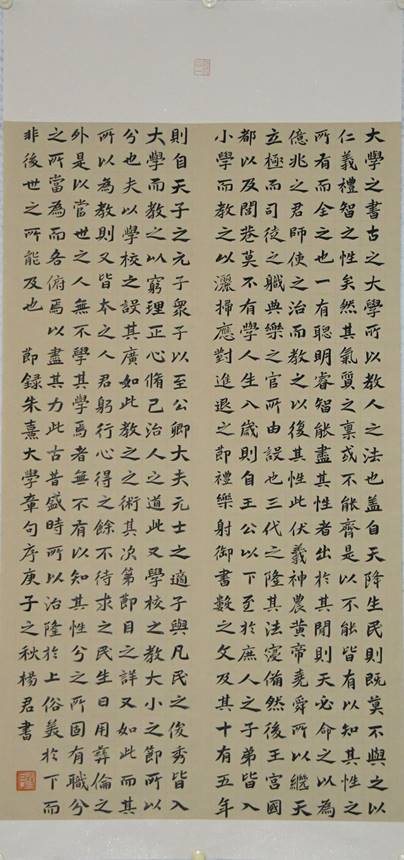 大學之書古之大學所以教人之法也蓋自天降生民則既莫不與之以
仁義禮智之性矣然其氣質之稟或不能齊是以不能皆有以知其性之
所有而全之也一有聰明睿智能盡其性者出於其閒則天必命之以為
億兆之君師使之治而教之以復其性此伏羲神農黃帝堯舜所以繼天
立極而司徒之職典樂之官所由設也三代之隆其法寖備然後王宮國
都以及閭巷莫不有學人生八歲則自王公以下至於庶人之子弟皆入
小學而教之以灑掃應對進退之節禮樂射御書數之文及其十有五年
則自天子之元子眾子以至公卿大夫元士之適子與凡民之俊秀皆入
大學而教之以窮理正心脩己治人之道此又學校之教大小之節所以
分也夫以學校之設其廣如此教之之術其次第節目之詳又如此而其
所以為教則又皆本之人君躬行心得之餘不待求之民生日用彝倫之
外是以當世之人無不學其學焉者無不有以知其性分之所固有職分
之所當為而各俯焉以盡其力此古昔盛時所以治隆於上俗美於下而
非後世之所能及也 節錄朱熹大學章句序庚子之秋楊君書